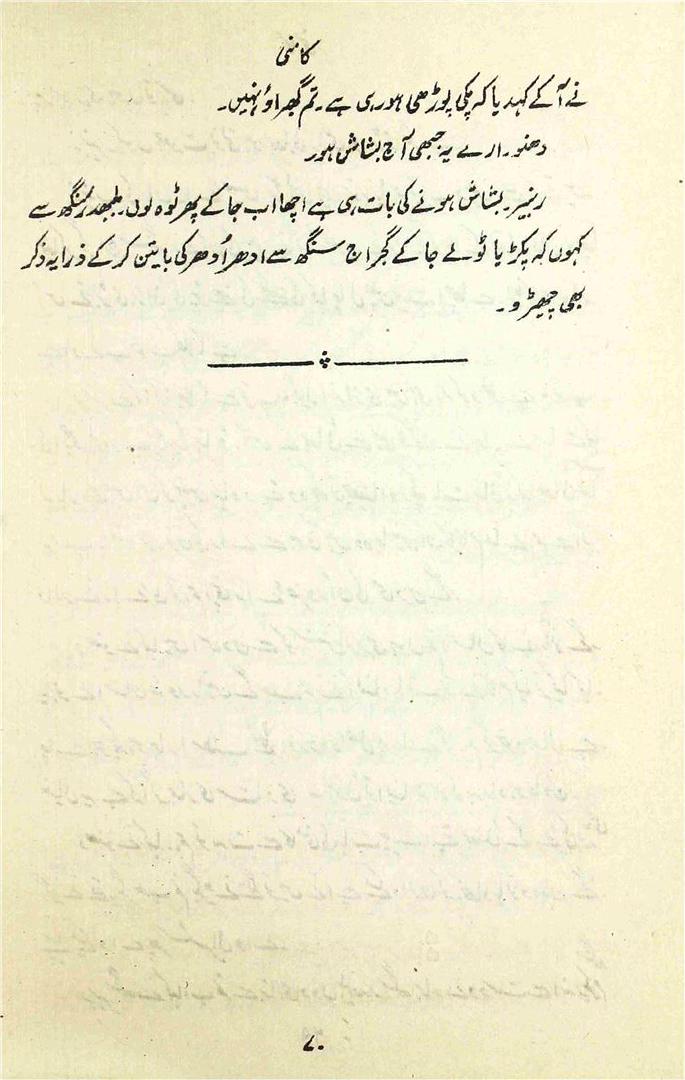 کامنی
نے آکے کہدیا کہ پکی پوڑھی ہورہی ہے۔ تم گھبراؤ نہیں۔
دھنو۔ ارے یہ جبھی آج بشاش ہو۔
رنبیر۔ بشاش ہونے کی بات ہی ہے اچھا اب جاکے پھر ٹوہ لوں۔ بلبھدر سنگھ سے
کہوں کہ پکڑیا ٹولے جاکے گجراج سنگھ سے ادھر اُدھر کی باتیں کرکے ذرا یہ ذکر
بھی چھیڑو۔
۷۰